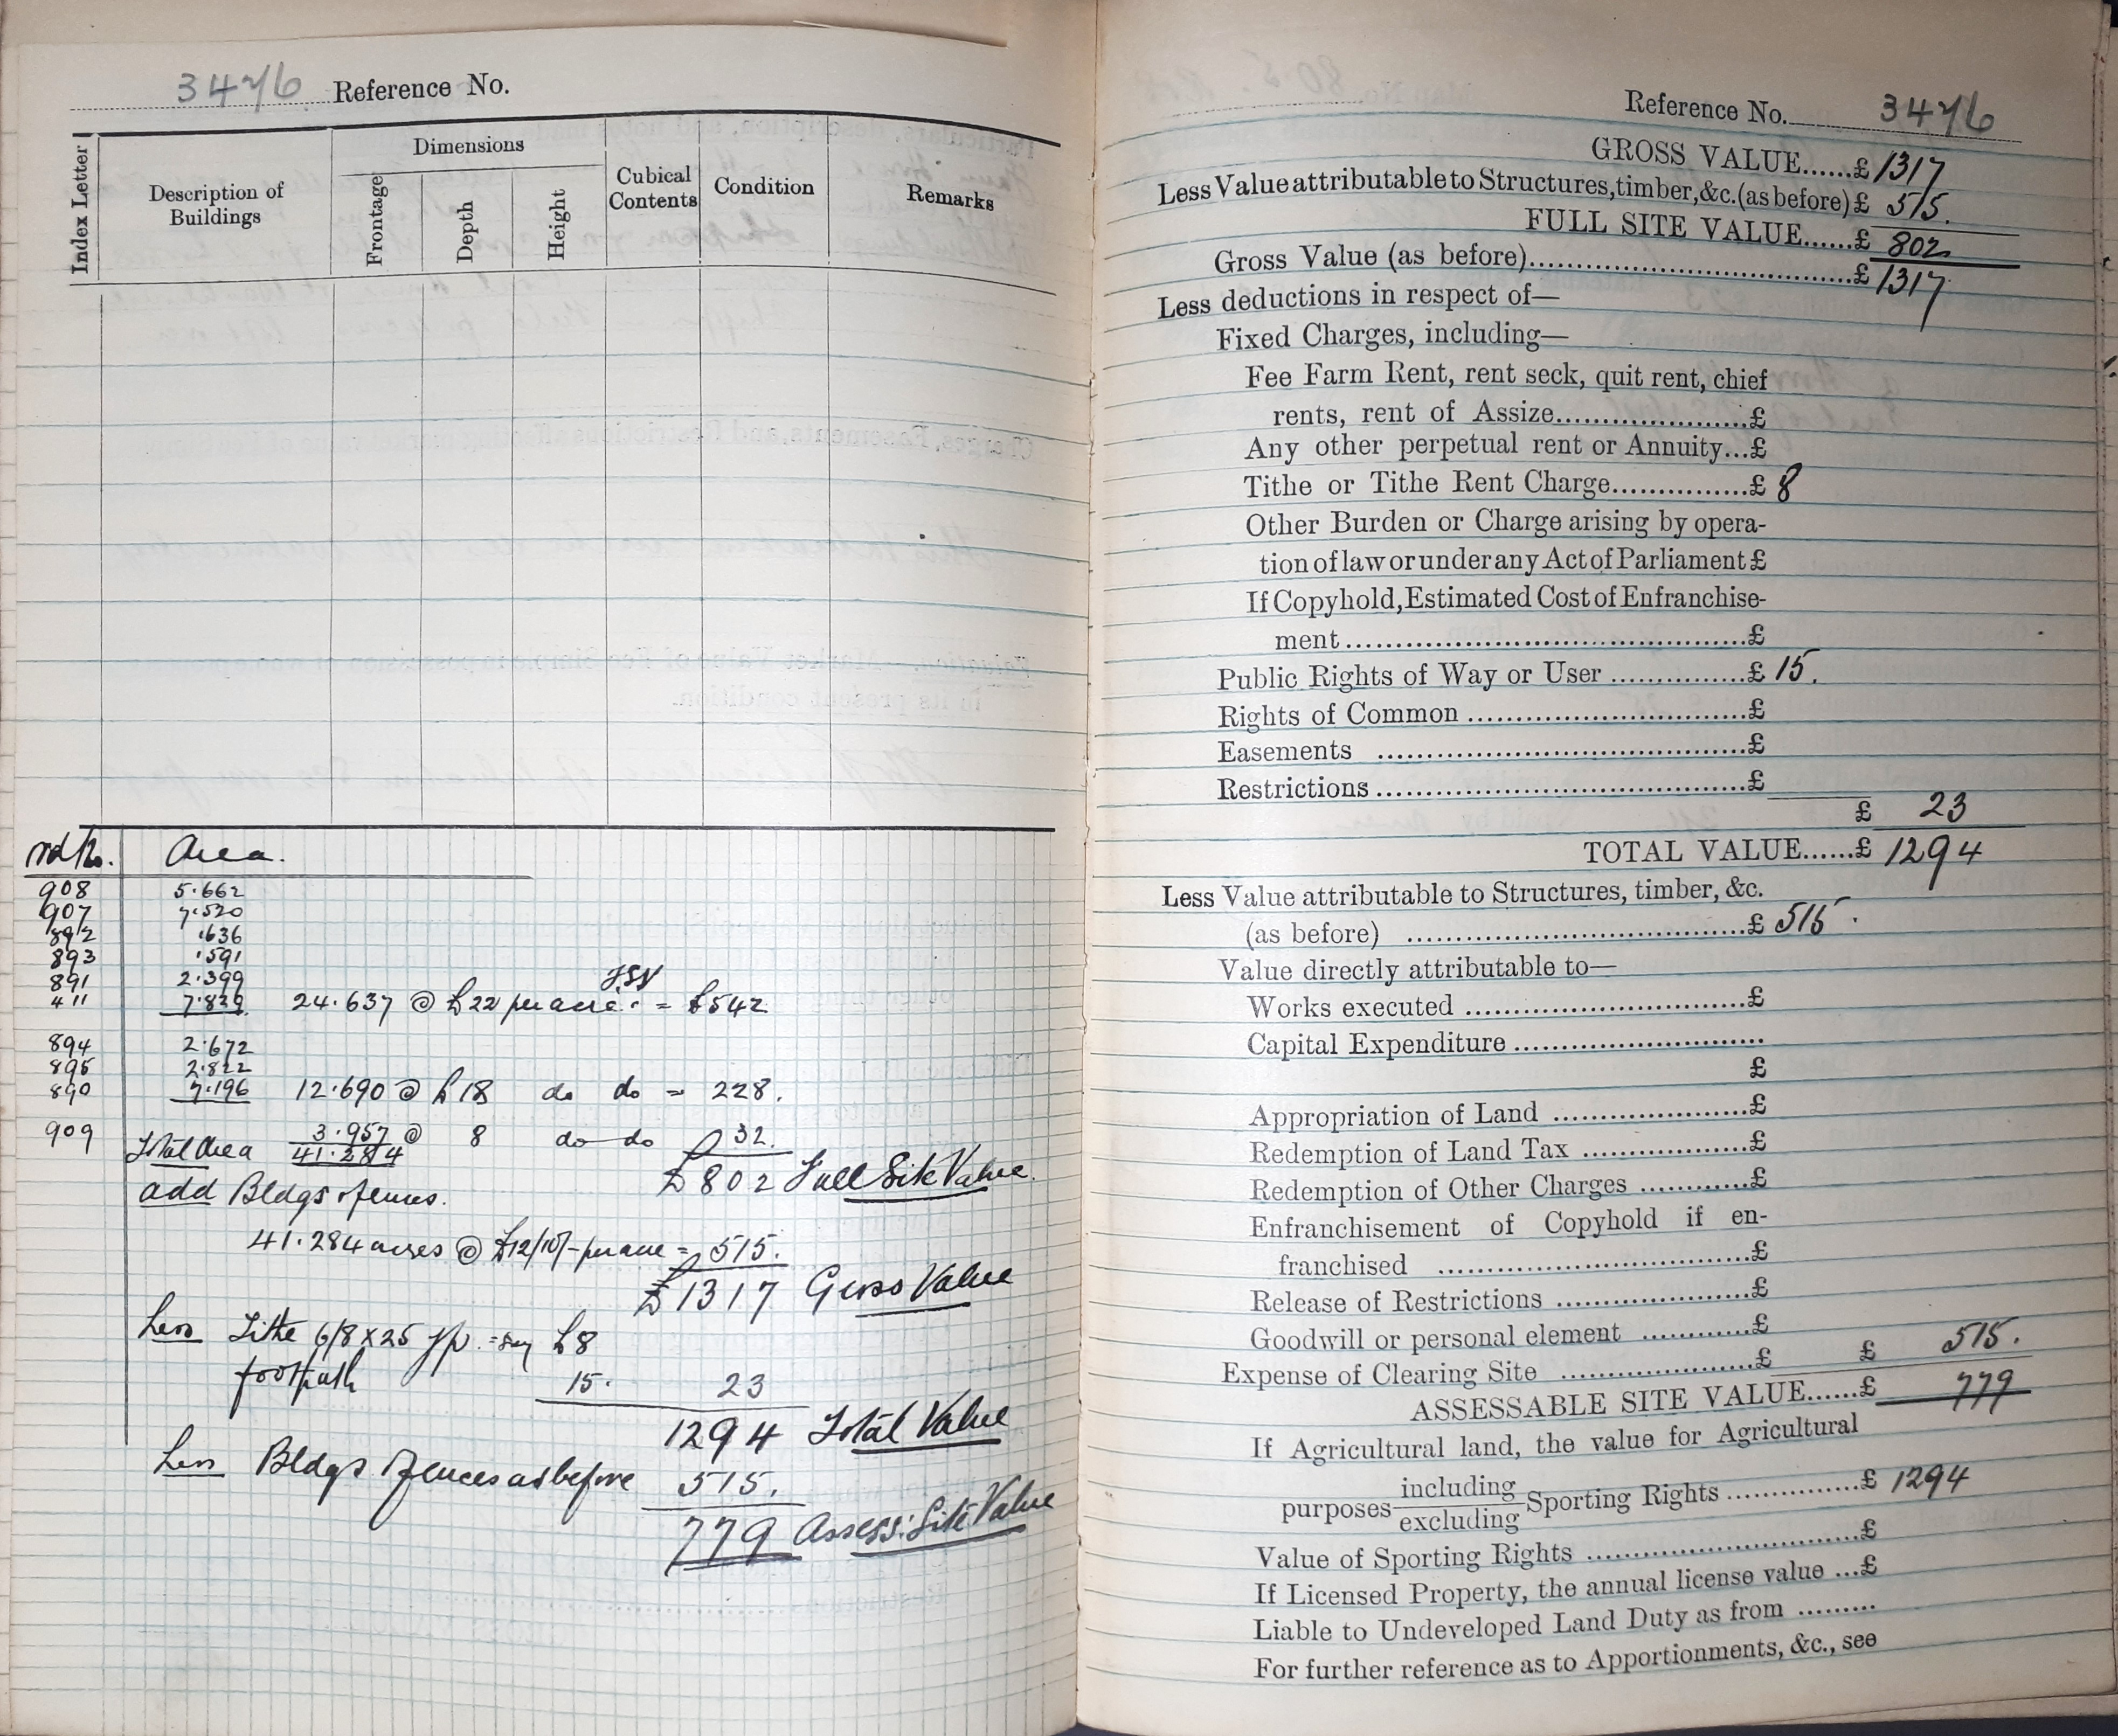 3476 Reference No.
Index Letter
Description of Buildings
Dimensions
Frontage
Depth
Height
Cubical Contents
Condition
Remarks
Area.
908 5.662
907 7.520
892 .636
893 .591
891 2.399
411 7.829 24.637 @ £22 per acre = £542
894 2.672
895 2.822
890 7.196 12.690 @ £18 do do = 228.
909 3.957 @ 8 do do 32.
Total Area 41.284
£802 Full Site Value
add Bldgs & fences.
41.284 acres @ £12/10/- per acre = 515.
£1317 Gross Value
Less Tithe 6/8 x 25 yp. = say £8
footpath 15. 23
1294 Total Value
Less Bldgs & fences as before 515.
779 Assess: Site Value
Reference No. 3476
GROSS VALUE......£ 1317
Less Value attributable to Structures, timber, &c. (as before) £ 515.
FULL SITE VALUE......£ 802
Gross Value (as before)......£ 1317
Less deductions in respect of—
Fixed Charges, including—
Fee Farm Rent, rent seck, quit rent, chief
rents, rent of Assize......£
Any other perpetual rent or Annuity...£
Tithe or Tithe Rent Charge......£ 8
Other Burden or Charge arising by opera-
tion of law or under any Act of Parliament £
If Copyhold, Estimated Cost of Enfranchise-
ment......£
Public Rights of Way or User......£ 15.
Rights of Common......£
Easements......£
Restrictions......£
£ 23
TOTAL VALUE......£ 1294
Less Value attributable to Structures, timber, &c.
(as before)......£ 515.
Value directly attributable to—
Works executed......£
Capital Expenditure......
£
Appropriation of Land......£
Redemption of Land Tax......£
Redemption of Other Charges......£
Enfranchisement of Copyhold if en-
franchised......£
Release of Restrictions......£
Goodwill or personal element......£
Expense of Clearing Site......£ £ 515.
ASSESSABLE SITE VALUE......£ 779
If Agricultural land, the value for Agricultural
purposes including / excluding Sporting Rights......£ 1294
Value of Sporting Rights......£
If Licensed Property, the annual license value...£
Liable to Undeveloped Land Duty as from.........
For further reference as to Apportionments, &c., see